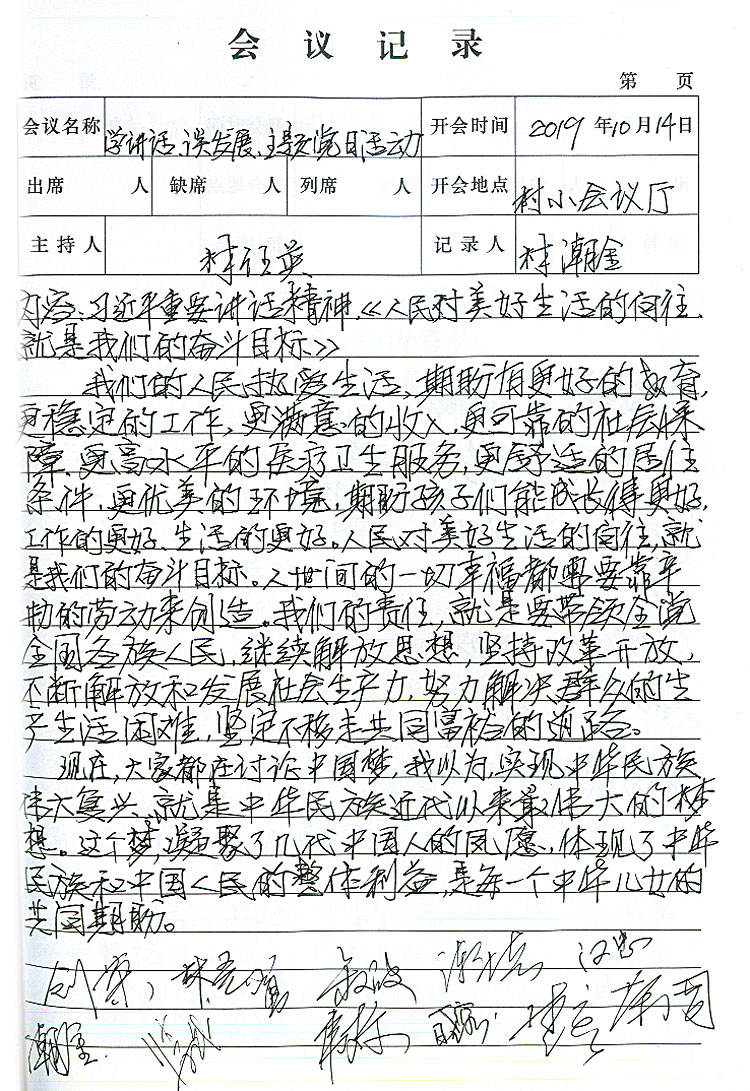 会议记录
第 页
会议名称 学讲话、谈发展、主题党日活动 开会时间 2019年10月14日
出席 人 缺席 人 列席 人 开会地点 村小会议厅
主持人 记录人
内容:习近平重要讲话精神《人民对美好生活的向往,
就是我们的奋斗目标》
我们的人民热爱生活,期盼有更好的教育,
更稳定的工作,更满意的收入,更可靠的社会保
障,更高水平的医疗卫生服务,更舒适的居住
条件,更优美的环境,期盼孩子们能成长得更好,
工作的更好、生活的更好。人民对美好生活的向往,就
是我们的奋斗目标。人世间的一切幸福都需要靠辛
勤的劳动来创造。我们的责任,就是要带领全党
全国各族人民,继续解放思想,坚持改革开放,
不断解放和发展社会生产力,努力解决群众的生
产生活困难,坚定不移走共同富裕的道路。
现在,大家都在讨论中国梦,我以为,实现中华民族
伟大复兴,就是中华民族近代以来最伟大的梦
想。这个梦,凝聚了几代中国人的夙愿,体现了中华
民族和中国人民的整体利益,是每一个中华儿女的
共同期盼。